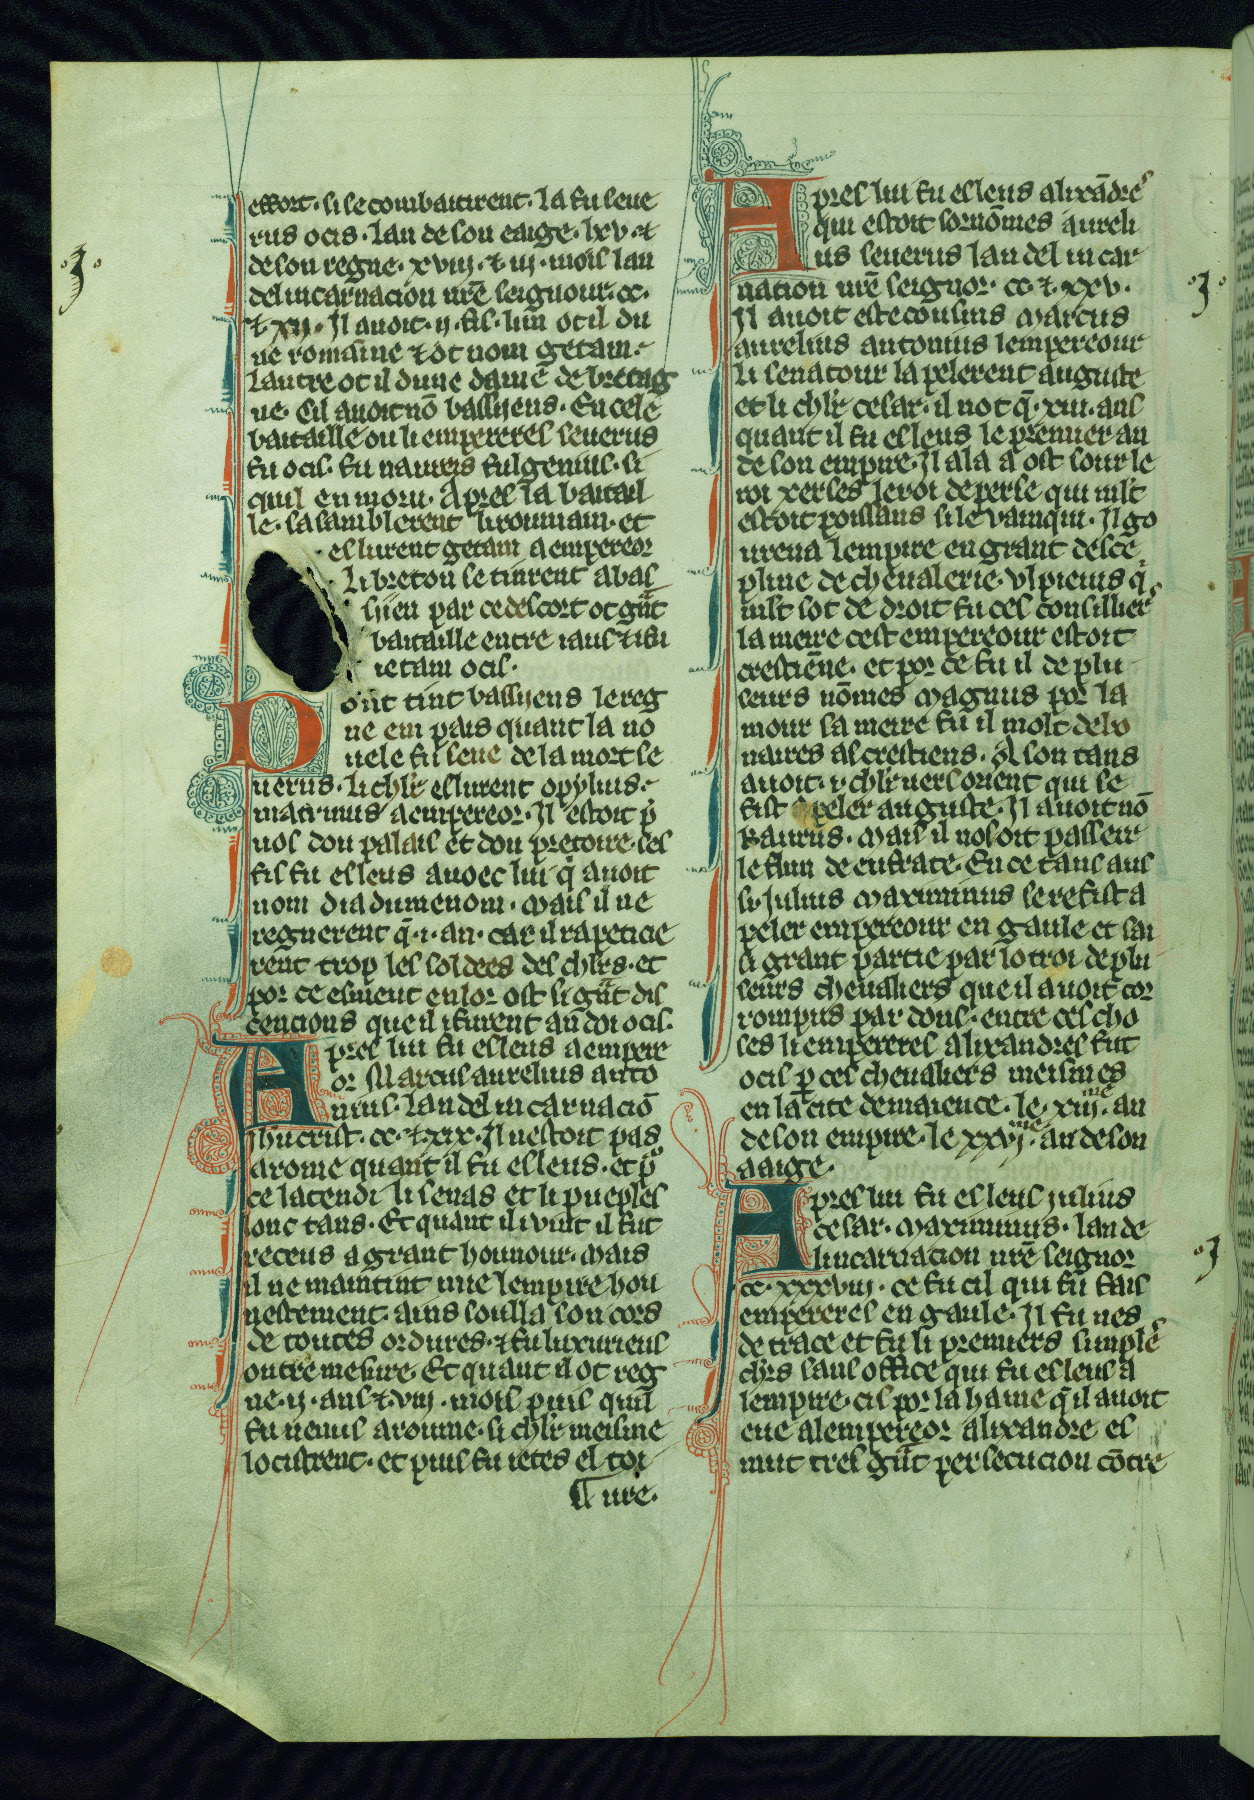 effort· si se combatirent· la fu seue
rus ocis· lan de son eaige· lxv· ⁊
de son regne· xviij· ⁊ iij· mois lan
del incarnacion nrē seignour· cc·
⁊ xij· Il auoit· ij· fils· lun ot il du
ne romaīne ⁊ ot nom getam·
lautre ot il dune dame de bretaig
ne· Cil auoit nō bassijens· En cele
bataille ou li empereres seuerus
fu ocis· fu naures fulgenius· si
quil en moru· Apres la batail
le· sasamblerent li roumain· et
eslurent getam a empereor
Li breton se tinrent a bas
sijen par ce descort ot gūt
bataille entre iaus ⁊ ibi
ietam ocis·
Dont tint bassijens le reg
ne em pais quant la no
uele fu seue de la mort se
uerus· li chlr eslurent opylius·
macrinus a empereor· Il estoit p̄
uos dou palais et dou pretoire· ses
fils fu esleus auoec lui q̄ auoit
nom diadumenom· mais il ne
regnerent q̄· i· an· car il rapeticie
rent trop les soldees des chlrs· et
por ce esment en lor ost si gūt dis
cencions que il i furent an̄doi ocis·
Apres lui fu esleus a empere
or Marcus aurelius anto
nius· lan del incarnaciō
ihucrist· cc· ⁊ xix· Il nestoit pas
a rome quant il fu esleus· et p̄
ce latendi li senas et li pueples
lonc tans· Et quant il i vint il fut
receus a grant honnour· mais
il ne maintint mie lempire hon
nestement· ains soulla son cors
de toutes ordures· ⁊ fu luxurieus
outre mesure· Et quant il ot reg
ne· ij· ans ⁊ viij· mois puis quil
fu uenus a roume· si chlr meisme
locistrent· et puis fu ietes el toi
ure·
Apres lui fu esleus alixādres
qui estoit sornōmes aureli
us seuerus lan del incar
nation nrē seignor· cc· ⁊ xxv·
Il auoit este cousins marcus
aurelius antonius lempereour
Li senatour lapelerent auguste
et li chlr cesar· il not q̄· xiii· ans
quant il fu esleus le premier an
de son empire· Il ala a ost sour le
roi xerses le roi de perse qui mlt
estoit poissans si le vainqui· Il go
urena lempire en grant desce
pline de cheualerie· vlpienus q̄
mlt sot de droit fu ces consilliers
la meire cest empereour estoit
crestiēne· et por ce fu il de plu
seurs nōmes magnus por la
mour sa meire fu il molt debo
naires as crestiens· A son tans
auoit· i· chlr uers orient qui se
fist apeler auguste· Il auoit nō
Taurus· mais il nosoit passeir
le flun de eufrate· En ce tans aus
si· iulius maximinus se refist a
peler empereour en gaule et sai
si grant partie par lotroi de plu
seurs cheualiers que il auoit cor
rompus par dons· entre ces cho
ses li empereres alixandres fut
ocis p̄ ces cheualiers meismes
en la cite de maience· le· xiijme· an
de son empire· le xxvjme· an de son
aaige·
Apres lui fu esleus iulius
cesar· maximinus· lan de
lincarnacion nrē seignor
cc· xxxviij· ce fu cil qui fu fais
empereres en gaule· Il fu nes
de trace et fu li premiers simples
chrs sans office qui fu esleus a
lempire· cis por la haine q̄ il auoit
eue a lempereor alixandre es
mut tres gūt persecucion cōtre